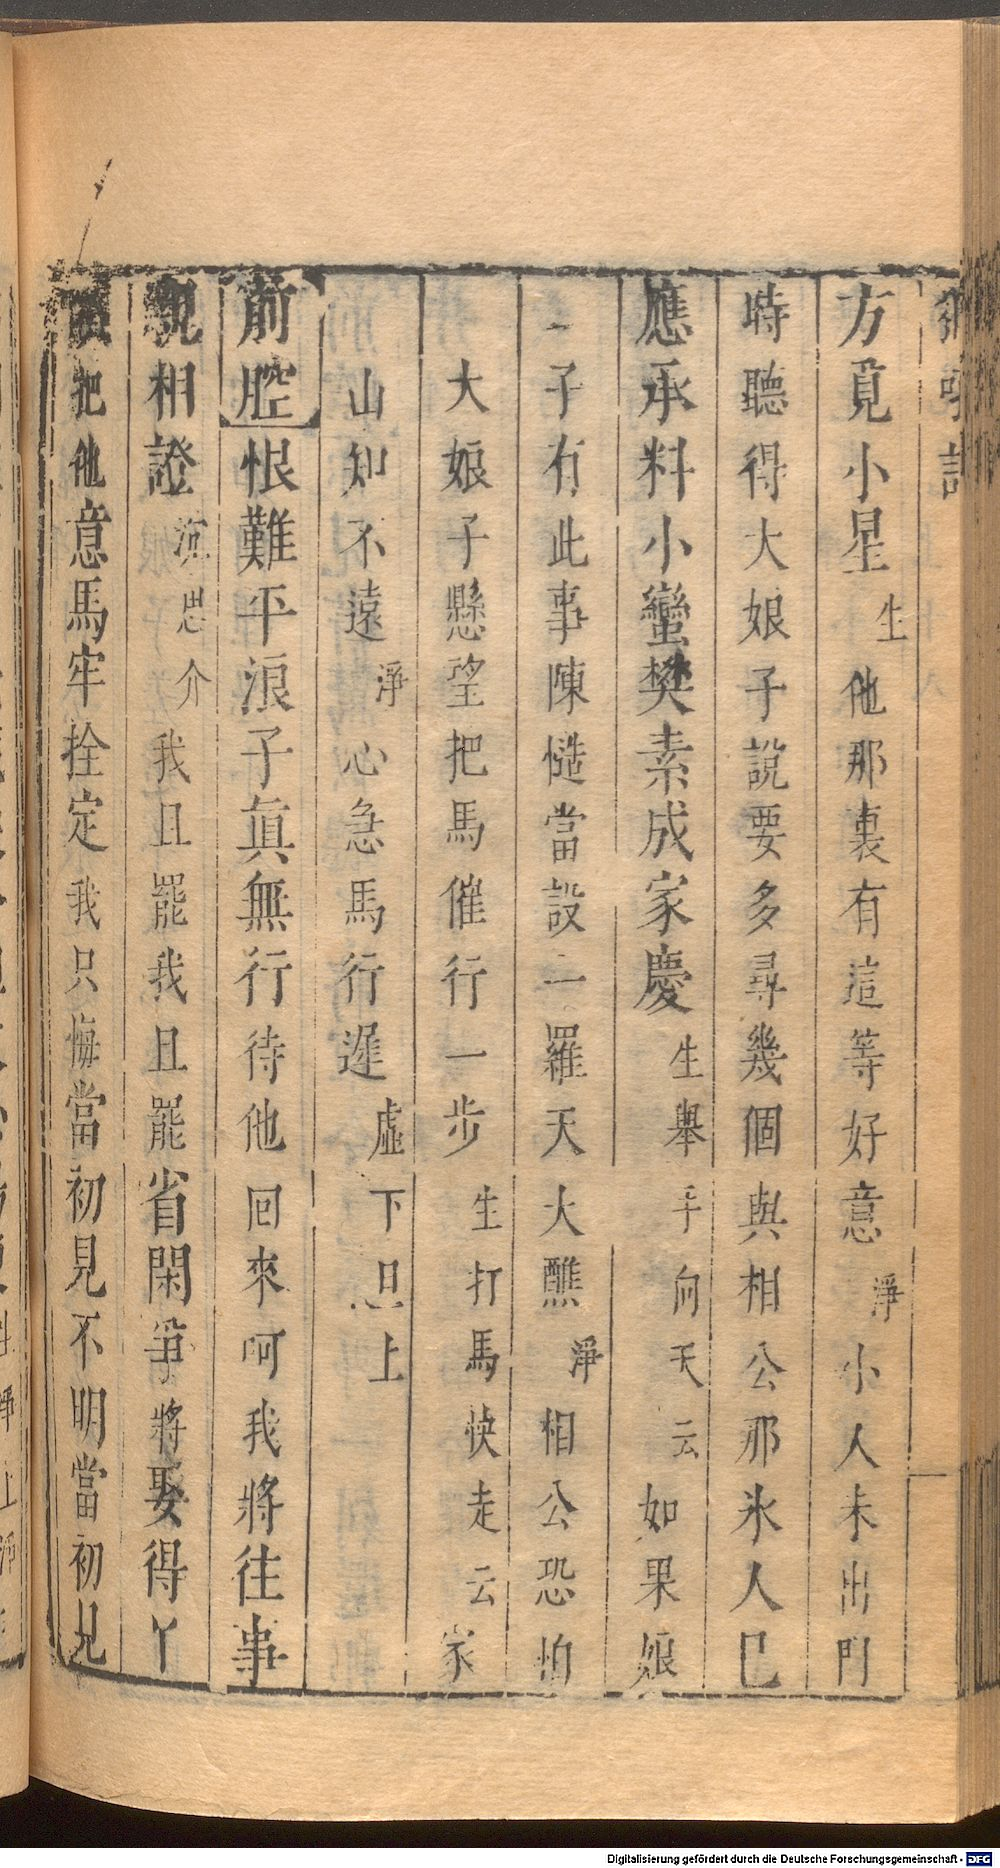 獅吼記
方覓小星生他那裏有這等好意淨小人未出門
時聽得大娘子說要多尋幾個與相公那氷人巳
應承料小蠻樊素成家慶生舉手向天云如果娘
子有此事陳慥當設一羅天大醮淨相公恐怕
大娘子懸望把馬催行一步生打馬快走云家
山知不遠淨心急馬行遲虛下旦上
前腔恨難平浪子眞無行待他回來呵我將往事
親相證沉思介我且罷我且罷省閑爭將娶得丫
頭把他意馬牢拴定我只悔當初見不明當初見
Digitalisierung gefördert durch die Deutsche Forschungsgemeinschaft - DFG